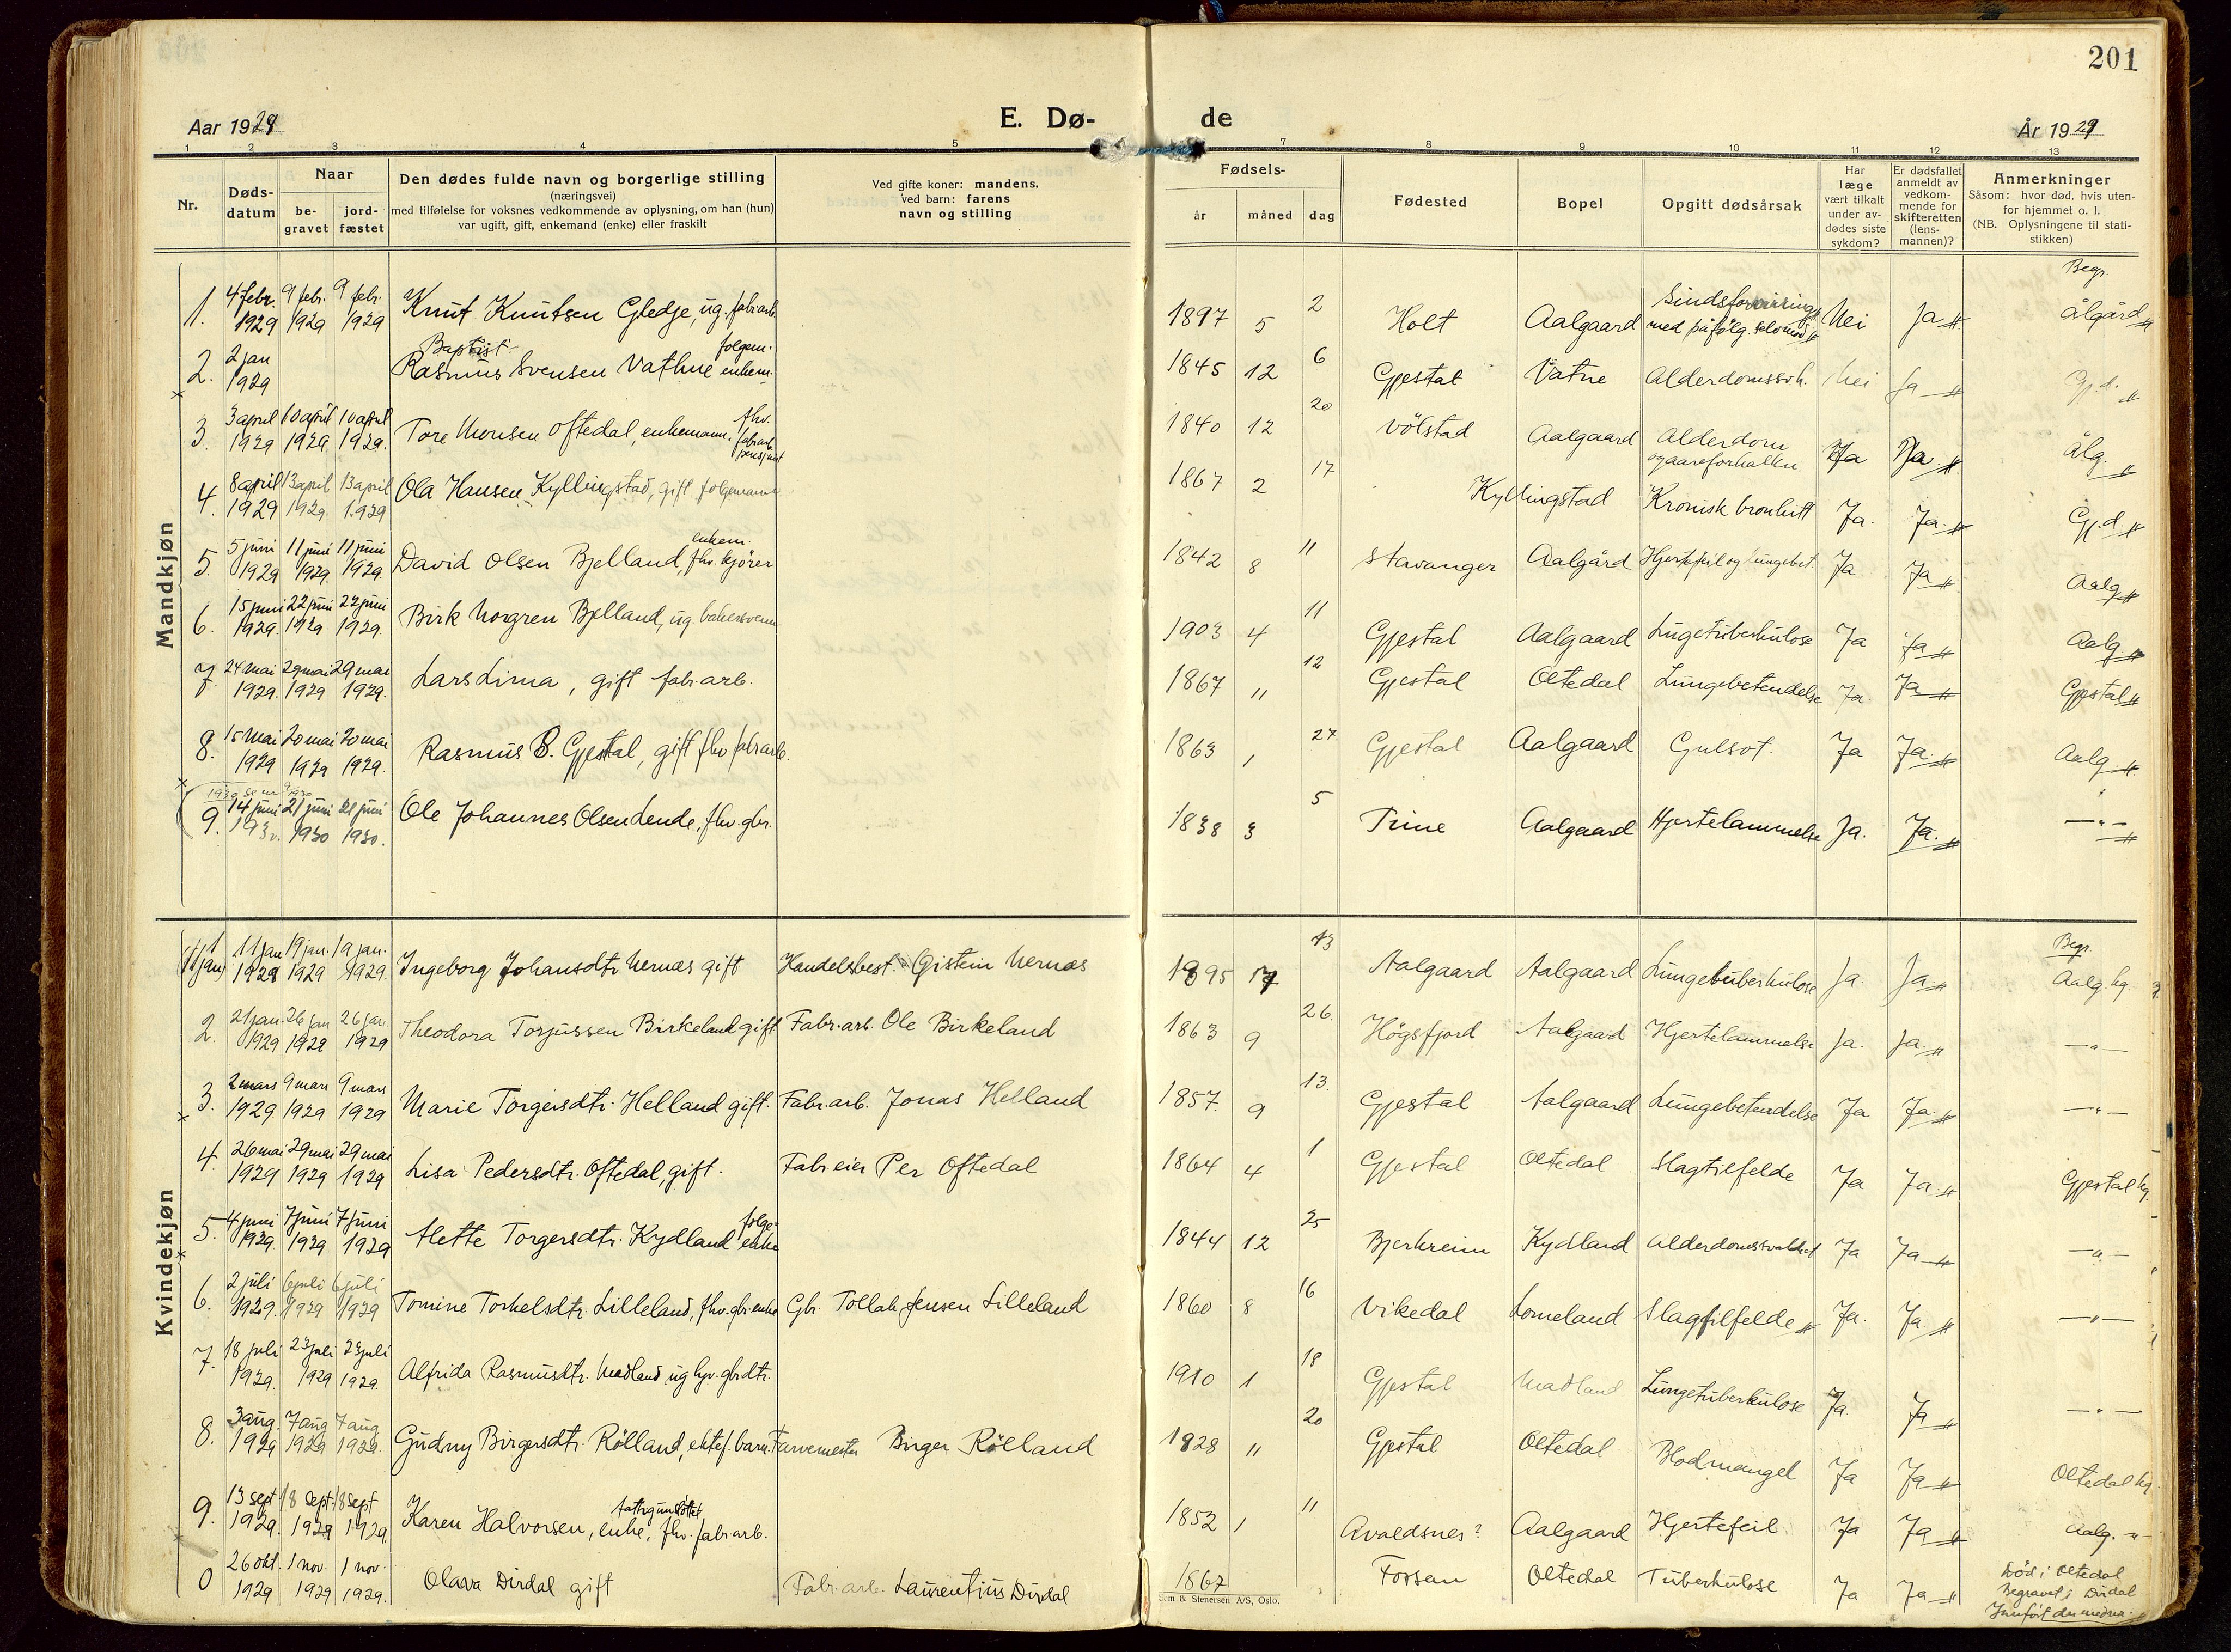 201
Aar 1929
E. Dø-
de
År 1929
1 2 3 4 5 7 8 9 10 11 12 13
Nr.
Døds-
datum
Naar
be-
gravet
jord-
fæstet
Den dødes fulde navn og borgerlige stilling
(næringsvei)
med tilføielse for voksnes vedkommende av oplysning, om han (hun)
var ugift, gift, enkemand (enke) eller fraskilt
Ved gifte koner: mandens,
ved barn: farens
navn og stilling
Fødsels-
år måned dag
Fødested
Bopel
Opgitt dødsårsak
Har
læge
vært tilkalt
under av-
dødes siste
sykdom?
Er dødsfallet
anmeldt av
vedkom-
mende for
skifteretten
(lens-
mannen)?
Anmerkninger
Såsom: hvor død, hvis uten-
for hjemmet o. l.
(NB. Oplysningene til stati-
stikken)
Mandkjøn
Begr.
1. 4 febr. 1929 9 febr. 1929 9 febr. 1929 Knut Knutsen Gledje, ug. fabr.arb. 1897 5 2 Holt Aalgaard Sindsforvirring med påfølg. selvmord Nei Ja Ålgård
2. 2 jan 1929 Baptist Rasmus Svensen Vathne folgem. enkem. 1845 12 6 Gjestal Vatne Alderdomssvh. Nei Ja Gj.d.
3. 3 april 1929 10 april 1929 10 april 1929. Tore Monsen Oftedal, enkemann, fhv. fabr.arb. pensjonist 1840 12 20 Völstad Aalgaard Alderdom og aareforkalkn. Ja Ja Ålg.
4. 8 april 1929 13 april 1929. 13 april 1929 Ola Hansen Kyllingstad, gift folgemann 1867 2 17 Kyllingstad Kronisk bronkitt Ja. Ja. Gj.d
5. 5 juni 1929 11 juni 1929. 11 juni 1929. David Olsen Bjelland, enkem. fhv. kjörer 1842 8 11 Stavanger Aalgård Hjertefeil og lungebet. Ja Ja Aalg
6. 15 juni 1929. 22 juni 1929 22 juni 1929. Birk Norgren Bjelland, ug. bakersvenn 1903 4 11 Gjestal Aalgaard Lugetuberkulose Ja Ja Aalg.
7. 24 mai 1929. 29 mai 1929 29 mai 1929. Lars Lima, gift fabr.arb. 1867 11 12 Gjestal Oltedal Lungebetendelse Ja. Ja Gjestal
8. 15 mai 1929 20 mai 1929 20 mai 1929. Rasmus B. Gjestal, gift fhv fabr.arb. 1863 1 27 Gjestal Aalgaard Gulsot. Ja Ja. Aalg.
9. 14 juni 1930. 21 juni 1930 21 juni 1930. Ole Johannes Olsen Lende, fhv. gbr. 1838 3 5 Trine Aalgaard Hjertelammelse Ja. Ja. —"—
Kvindekjøn
Begr.
1 (11 jan) 11 jan 1929 19 jan. 1929 19 jan. 1929. Ingeborg Johansdtr Nernæs gift Handelsbest. Gistein Nernæs 1895 13 Aalgaard Aalgaard Lungetuberkulose Ja. Ja Aalg. kg.
2. 21 jan. 1929 26 jan 1929 26 jan. 1929 Theodora Torjussen Birkeland gift Fabr.arb. Ole Birkeland 1863 9 26. Högsfjord Aalgaard Hjertelammelse Ja. Ja. —"—
3. 2 mars 1929 9 mars 1929 9 mars 1929 Marie Torgersdtr. Helland gift. Fabr.arb. Jonas Helland 1857. 9 13. Gjestal Aalgaard Lungebetendelse Ja Ja —"—
4. 26 mai 1929 29 mai 1929 29 mai 1929 Lisa Pedersdtr. Oftedal, gift. Fabr.eier Per Oftedal 1864 4 1 Gjestal Oltedal Slagtilfelde Ja Ja. Gjestal kg.
5. 4 juni 1929. 7 juni 1929 7 juni 1929 Alette Torgersdtr. Kydland folge- enke 1844 12 25 Bjerkreim Kydland Alderdomssvakhet Ja Ja —"—
6. 2 juli 1929. 6 juli 1929 6 juli 1929 Tomine Torkelsdtr. Lilleland, fhv. gbr.enke Gbr. Tollak Jensen Lilleland 1860 8 16 Vikedal Lomeland Slagtilfelde Ja. Ja. —"—
7. 18 juli 1929. 23 juli 1929 23 juli 1929. Alfrida Rasmusdtr. Madland ug hjv. gbrdtr. 1910 1 18 Gjestal Madland Lungetuberkulose Ja Ja —"—
8. 3 aug. 1929 7 aug 1929 7 aug 1929. Gudny Birgersdtr. Rölland, ektef. barn. Farvemester Birger Rölland 1928 11 20 Gjestal Oltedal Blodmangel Ja Ja Oltedal kg.
9. 13 sept 1929. 18 sept. 1929 18 sept 1929. Karen Halvorsen, enke, fattigunstöttet fhv. fabr.arb. 1852 1 11 Avaldsnes? Aalgaard Hjertefeil Ja Ja Aalg. —"—
0 26 okt. 1929 1 nov. 1929 1 nov. 1929. Olava Dirdal gift Fabr.arb. Laurentius Dirdal 1867 Fossan Oltedal Tuberkulose Ja Ja Död i Oltedal Begravet i Dirdal
Sem & Stenersen A/S, Oslo.